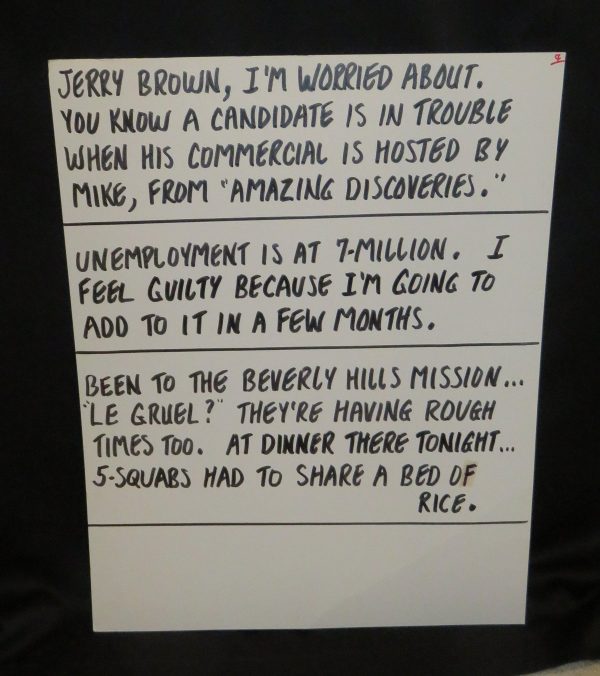 JERRY BROWN, I'M WORRIED ABOUT.
YOU KNOW A CANDIDATE IS IN TROUBLE
WHEN HIS COMMERCIAL IS HOSTED BY
MIKE, FROM "AMAZING DISCOVERIES."
UNEMPLOYMENT IS AT 7-MILLION. I
FEEL GUILTY BECAUSE I'M GOING TO
ADD TO IT IN A FEW MONTHS.
BEEN TO THE BEVERLY HILLS MISSION...
"LE GRUEL?" THEY'RE HAVING ROUGH
TIMES TOO. AT DINNER THERE TONIGHT...
5-SQUABS HAD TO SHARE A BED OF
RICE.